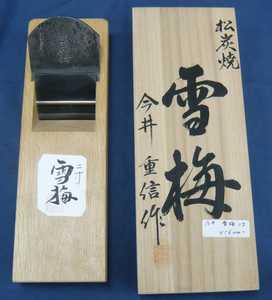 二寸
雪梅
松炭焼
雪梅
今井重信作